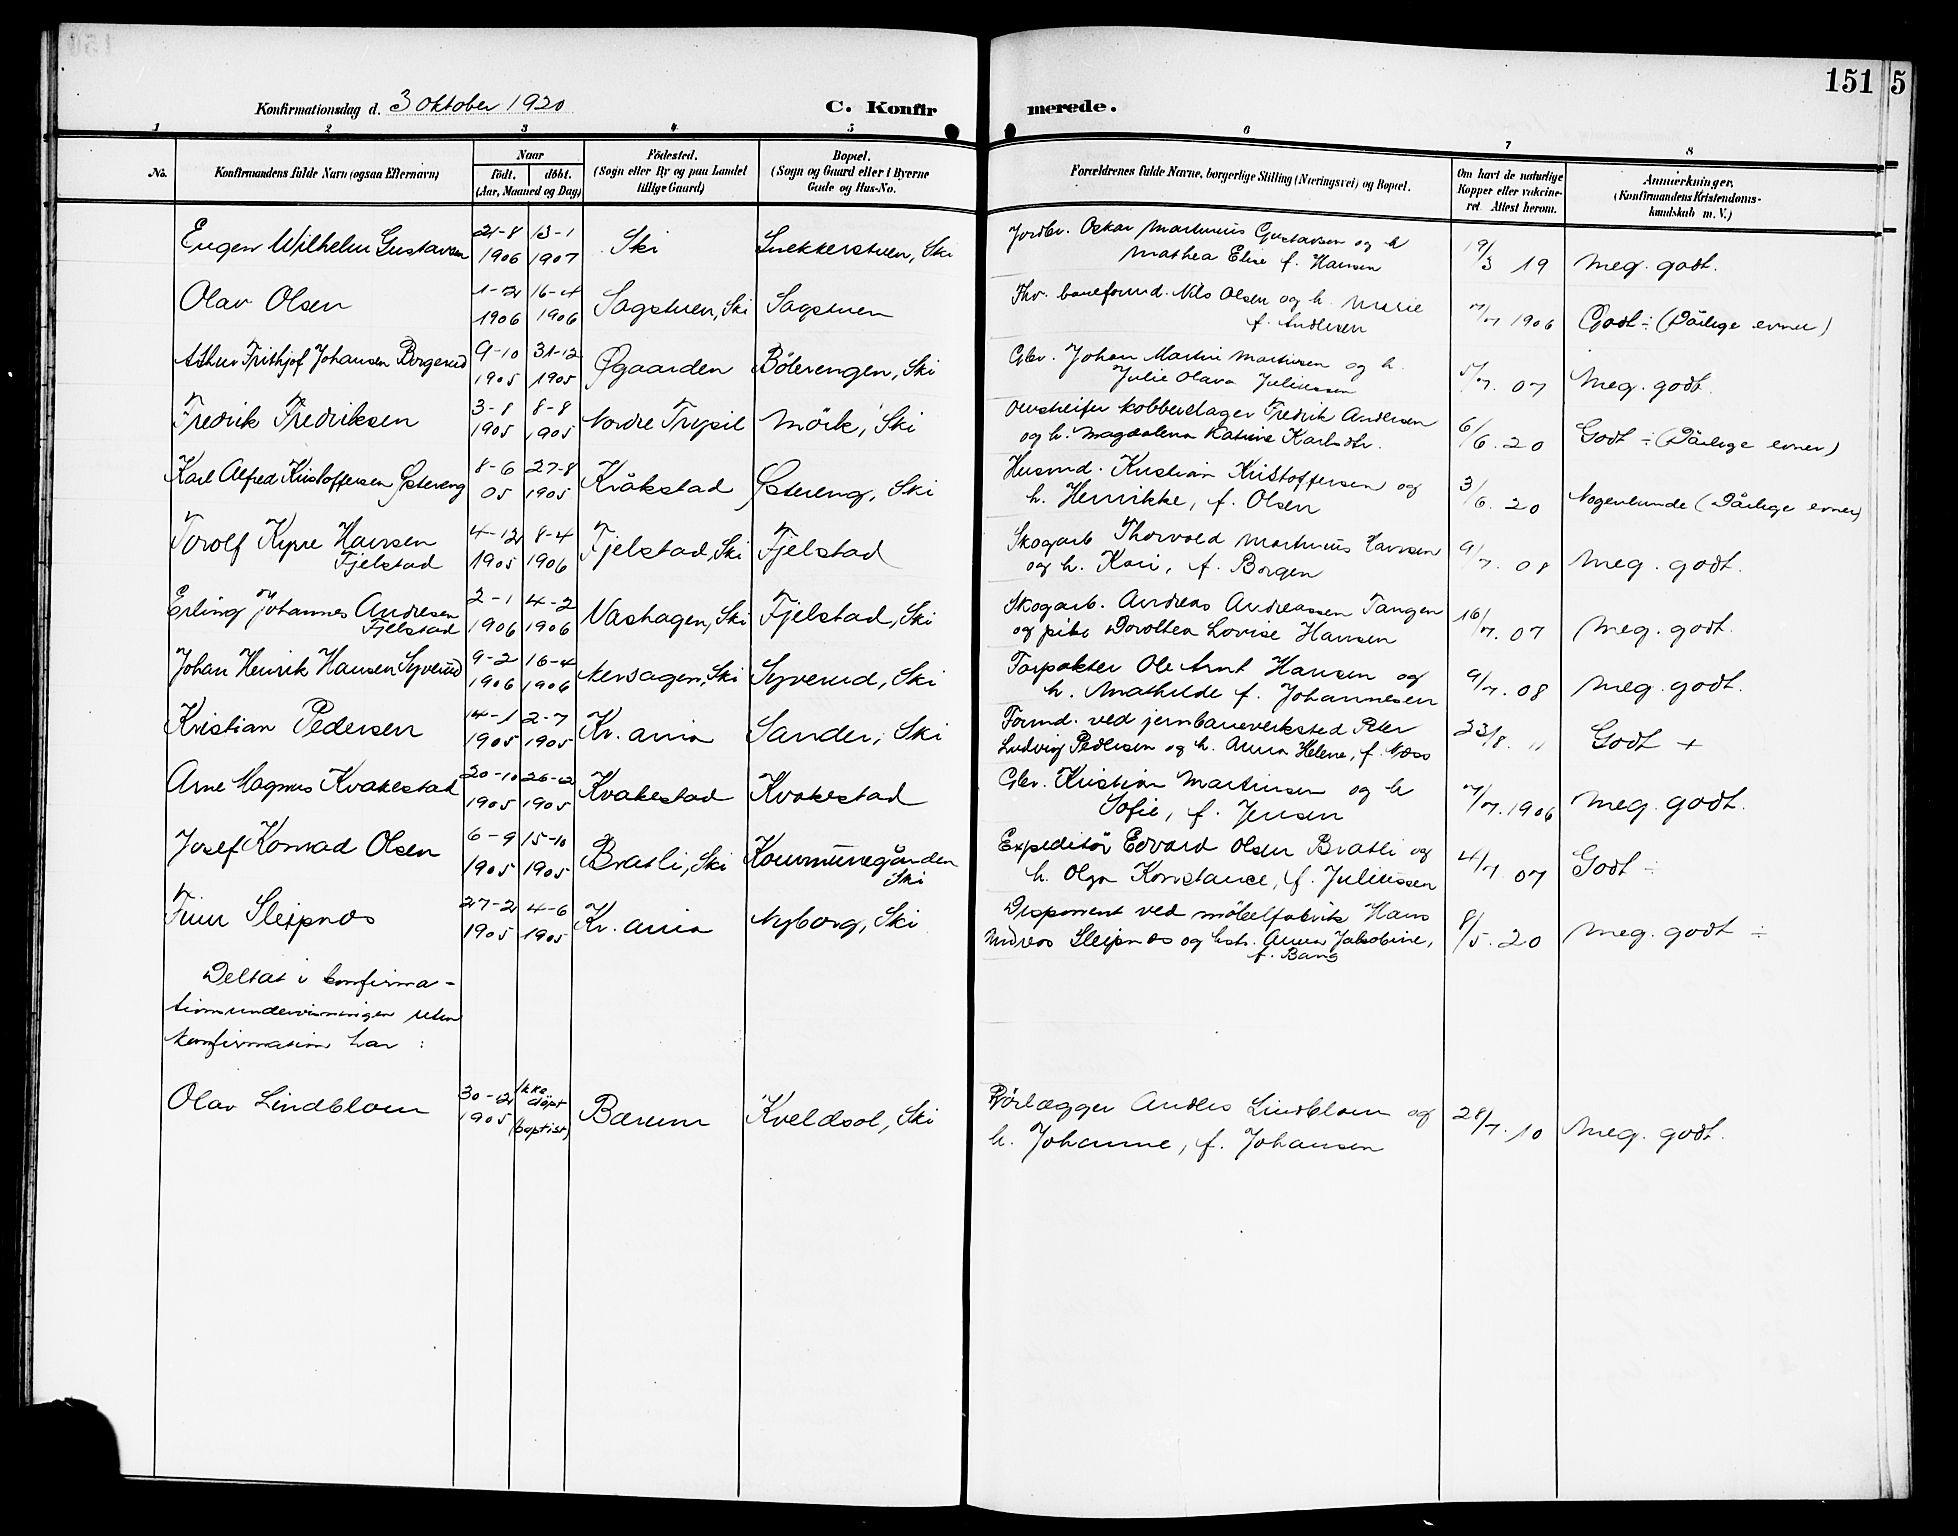 151 5
Konfirmationsdag d. 3 oktober 1920 C. Konfirmerede.
1 2 3 4 5 6 7 8
No. Konfirmandens fulde Navn (ogsaa Efternavn) Naar født. døbt. (Aar, Maaned og Dag) Födested. (Sogn eller By og paa Landet tillige Gaard) Bopæl. (Sogn og Gaard eller i Byerne Gade og Hus-No.) Forældrenes fulde Navne, borgerlige Stilling (Næringsvei) og Bopæl. Om havt de naturlige Kopper eller vakcineret. Attest herom. Anmærkninger. (Konfirmandens Kristendomskundskab m. V.)
Eugen Wilhelm Gustavsen 21-8 1906 13-1 1907 Ski Snekkerstuen, Ski Jordbr. Oskar Martinius Gustavsen og h
Mathea Elise f. Hansen 19/3 19 Meg. godt.
Olav Olsen 1-2 1906 16-4 1906 Sagstuen, Ski Sagstuen Fhv. baneformd. Nils Olsen og h. Marie
f. Andersen 7/7 1906 Godt ÷ (Dårlige evner)
Arthur Frithjof Johansen Borgerud 9-10 1905 31-12 1905 Øgaarden Bölerengen, Ski Gbr. Johan Martin Martinsen og h.
Julie Olava Juliussen 5/7. 07 Meg. godt.
Fredrik Fredriksen 3-8 1905 8-8 1905 Nordre Trysil Mörk, Ski kobberslager Fredrik Andersen
og h. Magdalena Katrine Karlsdtr. 6/6. 20 Godt ÷ (Dårlige evner)
Karl Alfred Kristoffersen Østereng 8-6 05 27-8 1905 Kråkstad Østereng, Ski Husmd. Kristian Kristoffersen og
h. Henrikke, f. Olsen 3/6. 20 Nogenlunde (Dårlige evner)
Torolf Kyrre Hansen
Fjelstad 4-12 1905 8-4 1906 Fjelstad, Ski Fjelstad Skogarb Thorvald Martinius Hansen
og h. Kari, f. Borgen 9/7. 08 Meg. godt.
Erling Johannes Andresen
Fjelstad 2-1 1906 4-2 1906 Vashagen, Ski Fjelstad, Ski Skogarb. Andreas Andreassen Tangen
og pike Dorothea Lovise Hansen 16/7. 07 Meg. godt.
Johan Henrik Hansen Syverud 9-2 1906 16-4 1906 Nersagen, Ski Syverud, Ski Forpakter Ole Arnt Hansen og
h. Mathilde f. Johannesen 9/7. 08 Meg. godt.
Kristian Pedersen 14-1 1905 2-7 1905 Kr.ania Sander, Ski Formd. ved jernbaneverksted Peter
Ludvig Pedersen og h. Anna Helene, f. Næss 23/8. 11 Godt +
Arne Magnus Kvakestad 20-10 1905 26-12 1905 Kvakestad Kvakestad Gbr. Kristian Martinsen og h
Sofie, f. Jensen 7/7. 1906 Meg. godt.
Josef Konrad Olsen 6-9 1905 15-10 1905 Bratli, Ski Kommunegården
Ski Expeditör Edvard Olsen Bratli og
h. Olga Konstance, f. Juliussen 4/7 07 Godt ÷
Finn Sleipnæs 27-2 1905 4-6 1905 Kr.ania Nyborg, Ski Disponent ved möbelfabrik Hans
Andreas Sleipnæs og hstr. Anna Jakobine,
f. Bang 8/5. 20 Meg. godt ÷
Deltat i konfirma-
tionsundervisningen uten
konfirmation har :
Olav Lindbloem 30-12 1905 Ikke döpt (baptist) Bærum Kveldsol, Ski Rörlægger Anders Lindbloem og
h. Johanne, f. Johansen 28/7. 10 Meg. godt.